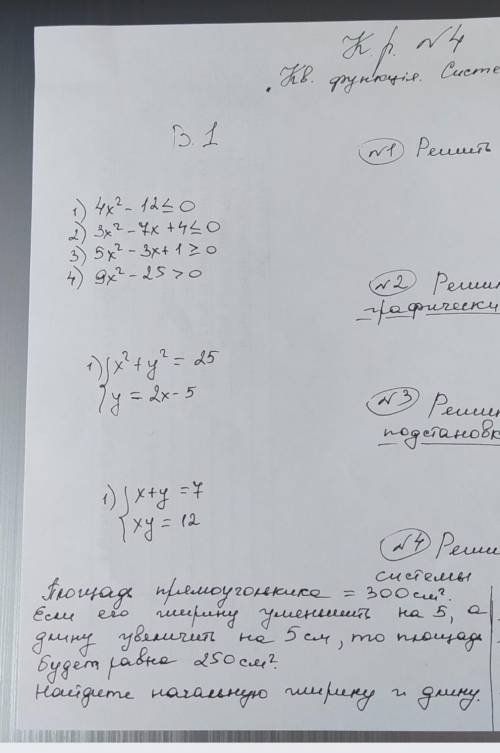 К.р. №4
Кв. функція. Систе
В.1
№1 Решить
1) 4x² - 12 ≤ 0
2) 3x² - 7x + 4 ≤ 0
3) 5x² - 3x + 1 ≥ 0
4) 9x² - 25 > 0
№2 Решит
графически
1) { x² + y² = 25
y = 2x - 5
№3 Решит
подстановк
1) { x + y = 7
xy = 12
№4 Реши
системы
Площадь прямоугольника = 300 см².
Если его ширину уменшить на 5, а
длину увеличить на 5 см, то площадь
будет равна 250 см².
Найдите начальную ширину и длину.